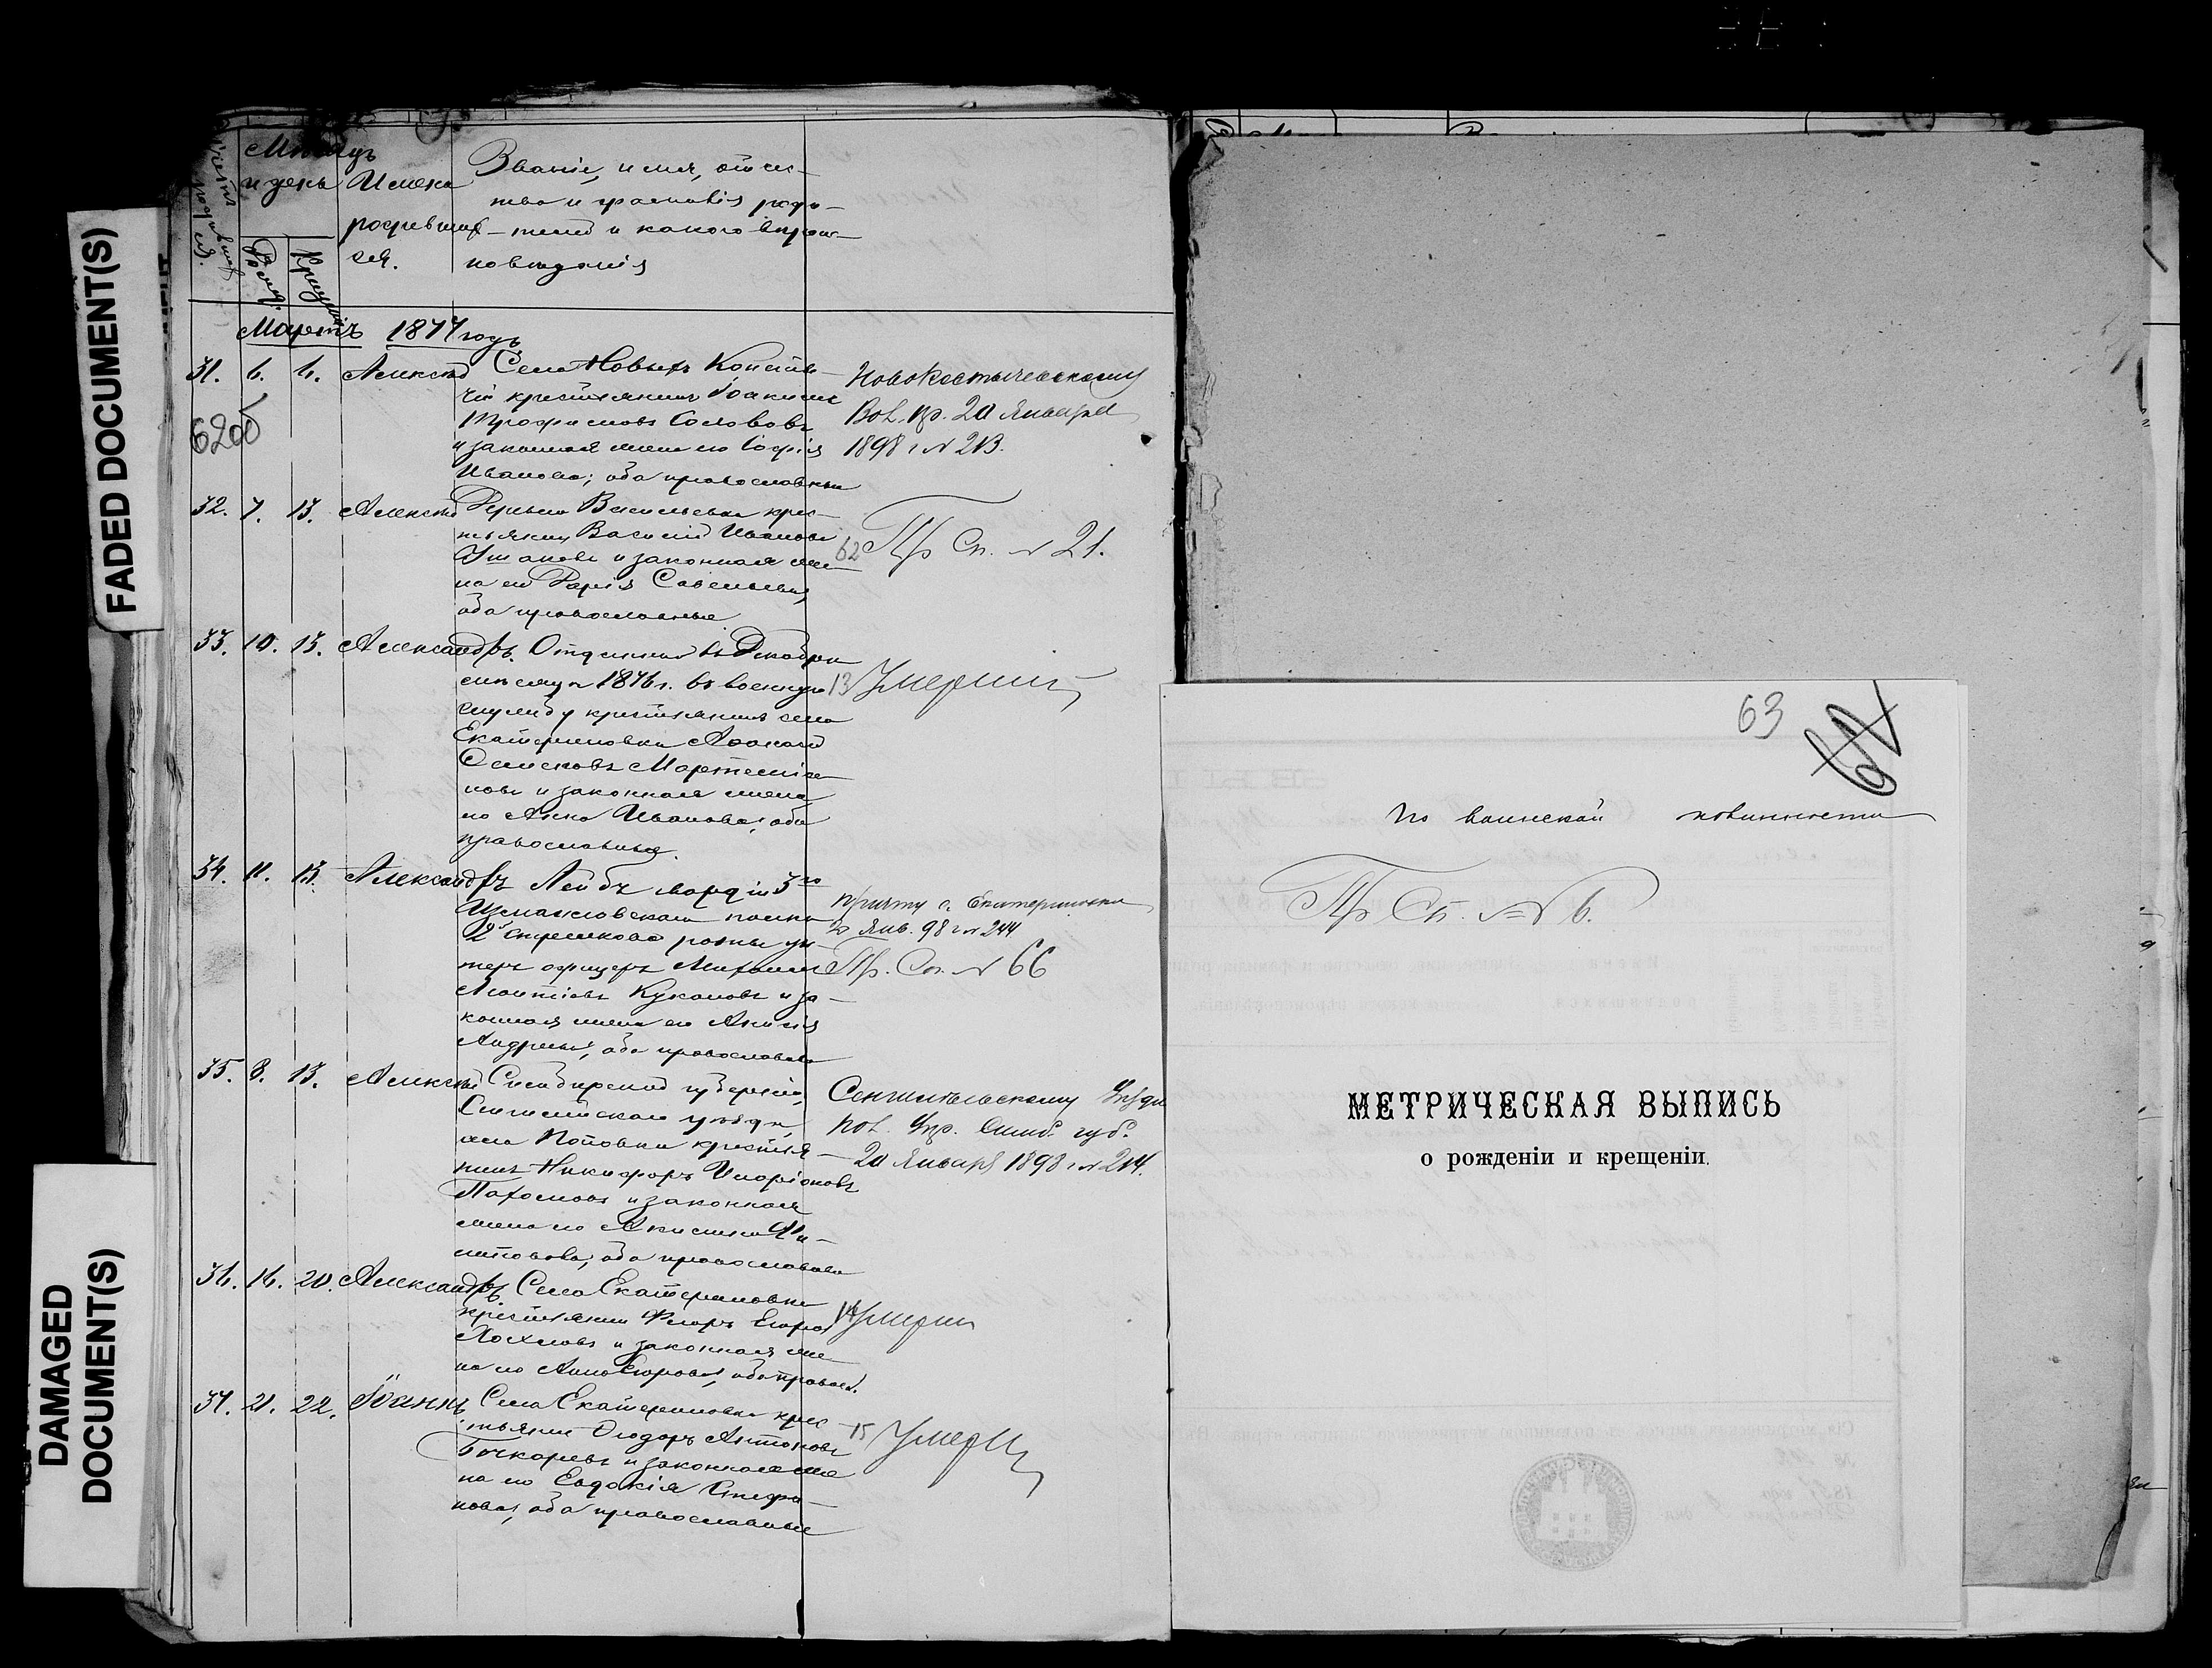 FADED DOCUMENT(S)
DAMAGED
DOCUMENT(S)
Мѣсяцъ
и день
Имена
родившихся.
Званіе, имя, отчес-
тво и фамилія роди-
телей и какого вѣроис-
повѣданія
Мартъ 1877 годъ
31. 6. 6. Алексѣй Села Новыхъ Косты-
чей крестьянинъ Іоакимъ
Трофимовъ Соловьевъ
и законная жена его Софія
Иванова; оба православные
6200
Новокостычевскому
Вол. пр. 20 Января
1898 г. № 213.
32. 7. 13. Алексѣй
Васильевки крес-
тьянинъ Василій Ивановъ
и законная же-
на его Дарія Савельева,
оба православные
62 Пр Сп. № 21.
33. 10. 13. Александръ. Отданный въ Декабрѣ
мѣсяцѣ 1876 г. въ военную
службу крестьянинъ села
Екатериновки
Мартемья-
новъ и законная жена
его Анна Иванова, оба
православные.
13 Умерший
34. 11. 13. Александръ Лейбъ гвардіи 3го
Измаиловскаго полка
2й стрелковой роты ун-
теръ офицеръ Михаилъ
Леонтіевъ Кукановъ и за-
конная жена его
Андреева, оба православные
Причту с. Екатериновки
20 Янв. 98 г. № 244
Пр. Сп. № 66
35. 8. 13. Алексѣй Симбирской губерніи,
уѣзда,
села Поповки крестья-
нинъ Никифоръ Иларіоновъ
Пахомовъ и законная
жена его Акилина Фи-
липпова, оба православные
Сенгилѣевскому Уѣздн
пол. Упр. Симб. губ.
20 Января 1898 г. № 214.
36. 16. 20. Александръ. Села Екатериновки
крестьянинъ Флоръ Егоровъ
и законная же-
на его Анна Егорова, оба правосл.
14 Умерш
37. 21. 22. Іоаннъ Села Екатериновки крес-
тьянинъ Ѳеодоръ Антоновъ
Бочкаревъ и законная же-
на его Евдокія Стефа-
нова, оба православные
15 Умерш
63
По воинской повинности
Пр Сп. № 6.
МЕТРИЧЕСКАЯ ВЫПИСЬ
о рожденіи и крещеніи.